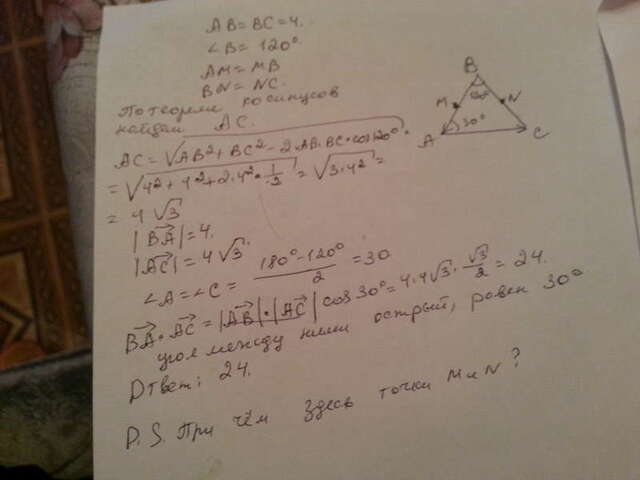 AB = BC = 4.
∠B = 120°.
AM = MB
BN = NC.
По теореме косинусов
найдём AC.
AC = √AB² + BC² - 2·AB·BC·cos120° =
= √4² + 4² + 2·4²·1/2 = √3·4² =
= 4√3
|BA| = 4.
|AC| = 4√3.
∠A = ∠C = 180° - 120° / 2 = 30
BA · AC = |AB|·|AC| cos30° = 4·4√3·√3/2 = 24.
угол между ними острый, равен 30°
Ответ: 24.
P.S. При чём здесь точки M и N?
B
M
120°
N
A
30°
C